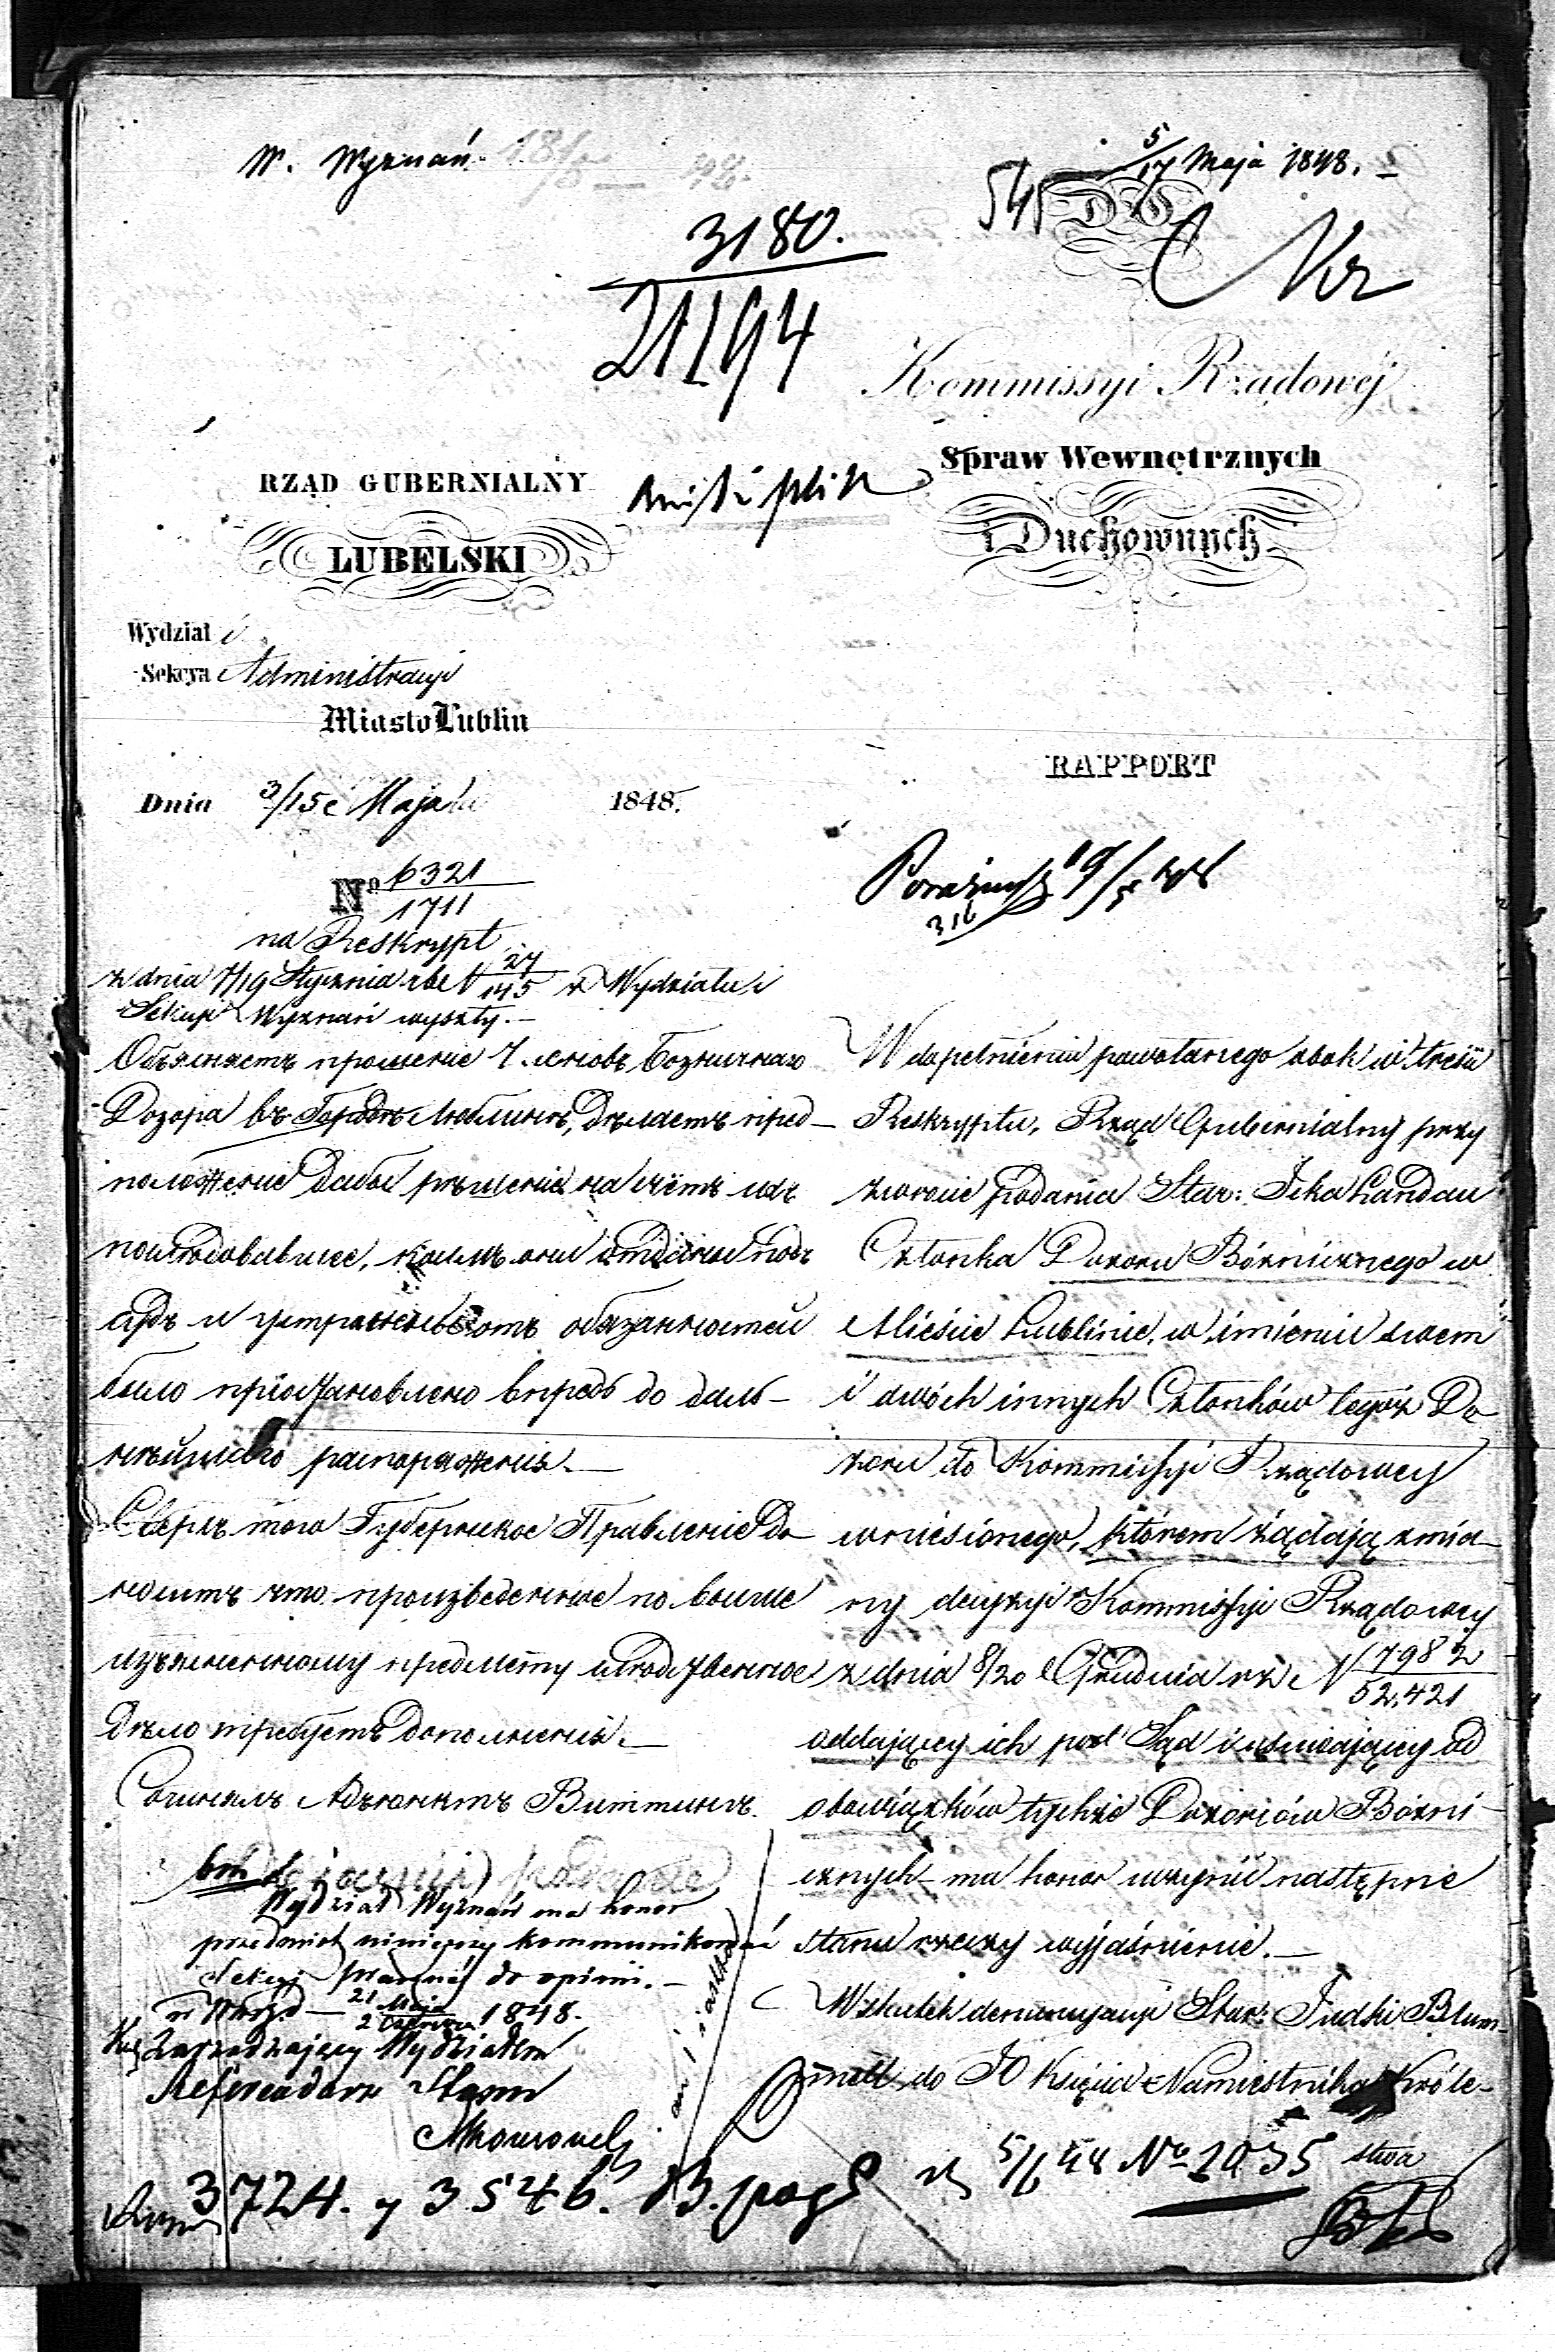 W. Wyznań.
5/17 Maja 1848.
545
DO
3180.
21194
Kommissyi Rządowéj
Spraw Wewnętrznych
i Duchownych
RZĄD GUBERNIALNY
LUBELSKI
Wydział i
Sekcya Administracyi
Miasto Lublin
RAPPORT
Dnia 3/15 Maja 1848.
No 6321
1711
na Reskrypt
z dnia 7/19 Stycznia rb N 27/145 z Wydziału i
Sekcyi Wyznań wyszły.—
19/5
316
Объясняетъ прошеніе Членовъ Божничнаго
Дозора въ Городѣ Люблинѣ, дѣлаетъ пред-
положеніе дабы рѣшеніе на счетъ ихъ
послѣдовавшее, коимъ они отданы подъ
судъ и устранены отъ обязанностей
было пріостановлено впредь до даль-
нѣйшаго распоряженія.—
Сверхъ того Губернское Правленіе до-
носитъ что произведенное по выше
изъясненному предмету
дѣло требуетъ дополненія.—
Сочинялъ Адъюнктъ Виттинъ.
W dopełnieniu powołanego obok w treści
Reskryptu, Rząd Gubernialny przy
zwrocie podania Star: Icka Landau
Członka Dozoru Bóżniczego w
Mieście Lublinie, w imieniu swem
i dwóch innych Członków tegoż Do-
zoru do Kommissyi Rządowey
wniesionego, którem żądają zmia-
ny decyzyi Kommissyi Rządowey
z dnia 8/20 Grudnia rz N 17982
52,421
oddającey ich pod Sąd i usuwającey od
obowiązków tychże Dozorców Bóżni-
cznych ma honor uczynić następne
stanu rzeczy wyjaśnienie.—
Wskutek denuncyacyi Star: Judki Blum-
mell do JO Księcia Namiestnika Króle-
stwa
Wydział Wyznań ma honor
przedmiot niniejszy kommunikować
Sekcyi prawnéj do opinii.—
21 Maja
2 Czerwca 1848.
Zarządzający Wydziałem
Referendarz Stanu
3724. y 3546.
5/6 48 No 1035